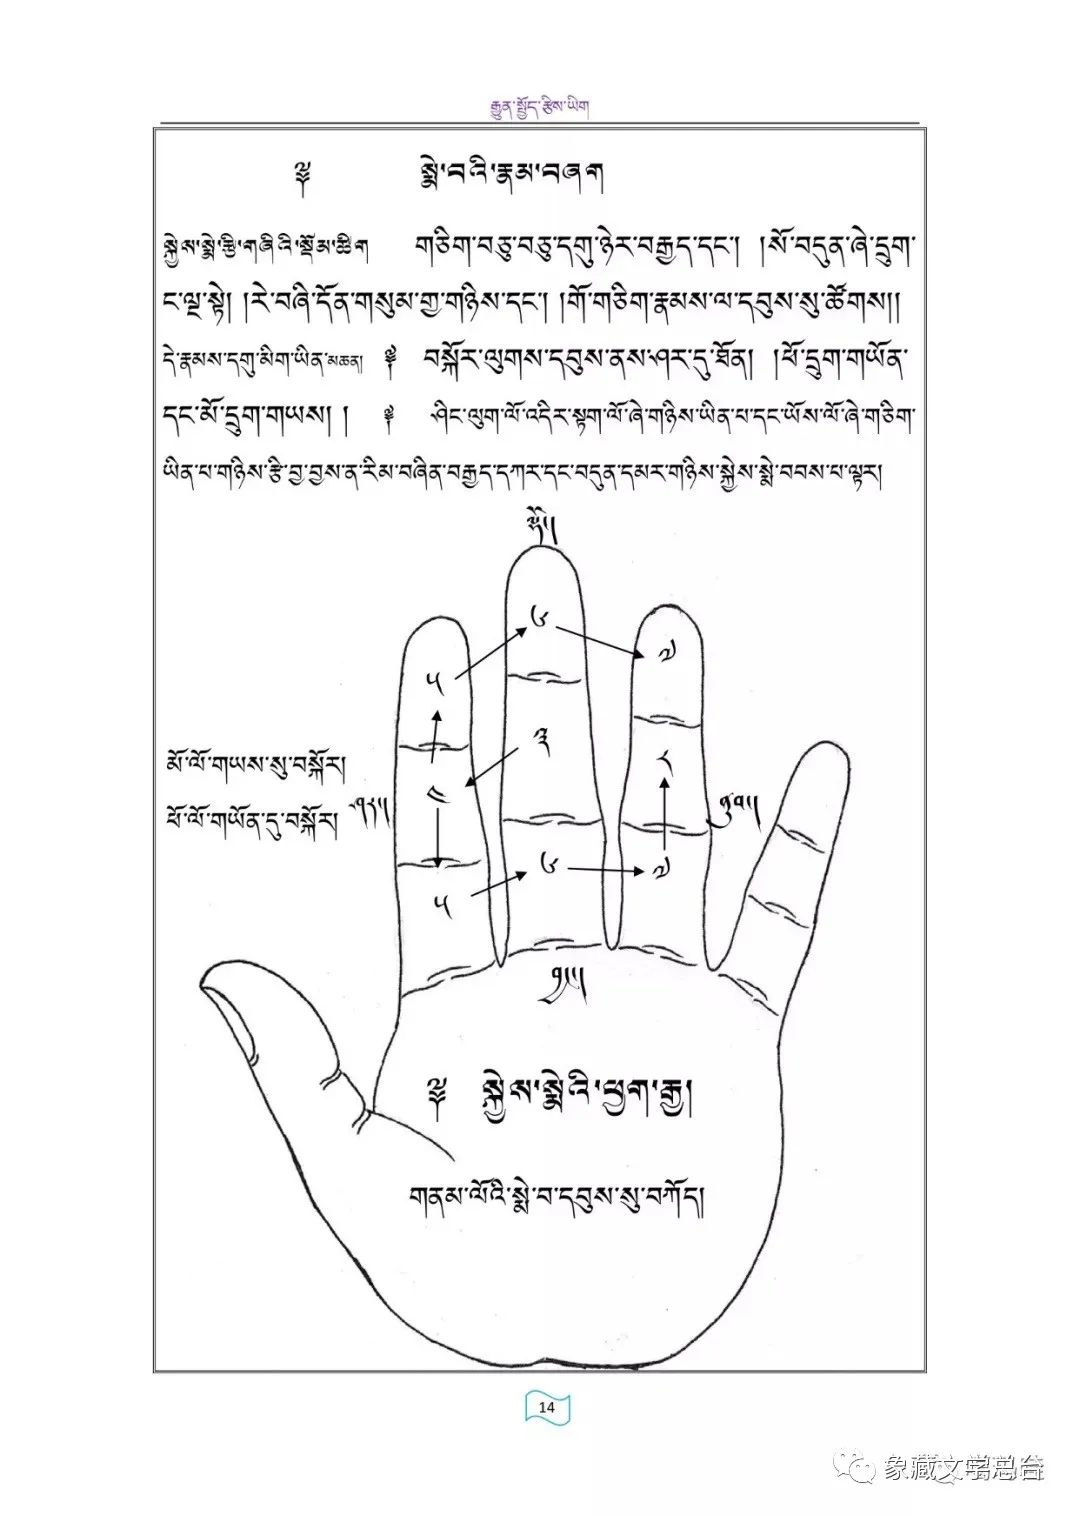 རྒྱུན་སྤྱོད་རྩིས་ཡིག
༈ སྨེ་བའི་རྣམ་བཞག
སྐྱེས་སྨེ་རྩི་གཞིའི་སྡོམ་ཚིག གཅིག་བཅུ་བཅུ་དགུ་ཉེར་བརྒྱད་དང་། །སོ་བདུན་ཞེ་དྲུག་
ང་ལྔ་སྟེ། །རེ་བཞི་དོན་གསུམ་གྱ་གཉིས་དང་། །གོ་གཅིག་རྣམས་ལ་དབུས་སུ་ཚོགས།།
དེ་རྣམས་དགུ་མིག་ཡིན་མཆན། ༈ བསྐོར་ལུགས་དབུས་ནས་ཤར་དུ་ཐོན། །ཕོ་དྲུག་གཡོན་
དང་མོ་དྲུག་གཡས། ། ༈ ཤིང་ལུག་ལོ་འདིར་སྟག་ལོ་ཞེ་གཉིས་ཡིན་པ་དང་ཡོས་ལོ་ཞེ་གཅིག་
ཡིན་པ་གཉིས་རྩི་བྱ་བྱས་ན་རིམ་བཞིན་བརྒྱད་དཀར་དང་བདུན་དམར་གཉིས་སྐྱེས་སྨེ་བབས་པ་ལྟར།
ལྷོ།།
༦
༧
༥
༣
མོ་ལོ་གཡས་སུ་བསྐོར།
༨
༤
ཕོ་ལོ་གཡོན་དུ་བསྐོར།
ཤར།།
ནུབ།།
༦
༧
༥
༈ སྐྱེས་སྨེའི་ཕྱག་རྒྱ།
གནམ་ལོའི་སྨེ་བ་དབུས་སུ་བཀོད།
14
象藏文学总台